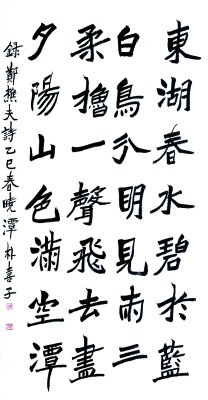 東湖春水碧於藍
白鳥分明見兩三
柔櫓一聲飛去盡
夕陽山色滿空潭
錄鄭樵夫詩乙巳春曉潭朴喜子